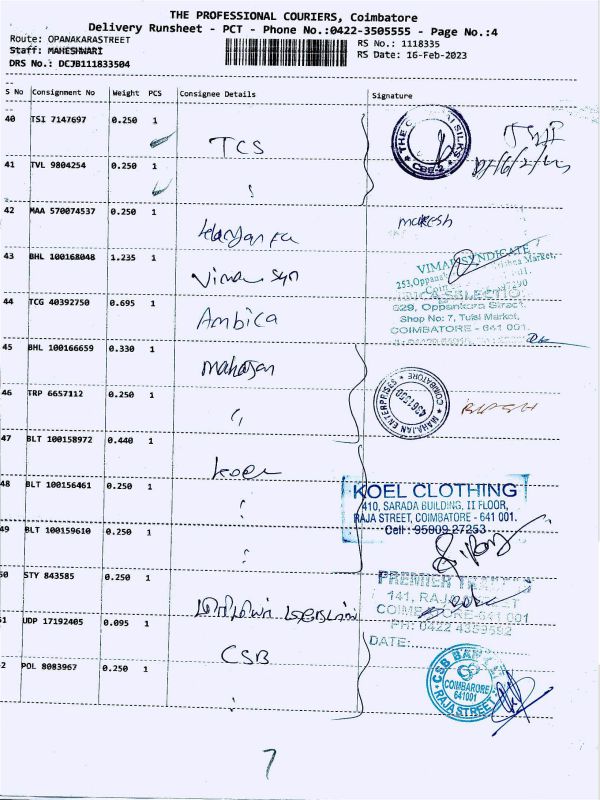 THE PROFESSIONAL COURIERS, Coimbatore
Delivery Runsheet - PCT - Phone No.:0422-3505555 - Page No.:4
Route: OPANAKARASTREET
RS No.: 1118335
Staff: MAHESHWARI
RS Date: 16-Feb-2023
DRS No.: DCJB111833504
S No Consignment No Weight PCS Consignee Details Signature
40 TSI 7147697 0.250 1
TCS
41 TVL 9804254 0.250 1
42 MAA 570074537 0.250 1
makesh
43 BHL 100168048 1.235 1
VIMAL SYNDICATE
44 TCG 40392750 0.695 1
Ambica
629, Oppankara Street,
Shop No: 7, Tulsi Market,
COIMBATORE - 641 001.
45 BHL 100166659 0.330 1
mahajan
MAHAJAN ENTERPRISES * COIMBATORE *
46 TRP 6657112 0.250 1
47 BLT 100158972 0.440 1
Koel
48 BLT 100156461 0.250 1
KOEL CLOTHING
410, SARADA BUILDING, II FLOOR,
RAJA STREET, COIMBATORE - 641 001.
Cell : 95009 27253
49 BLT 100159610 0.250 1
50 STY 843585 0.250 1
PREMIER
141, RAJA STREET
COIMBATORE-641 001
PH: 0422 4359592
51 UDP 17192405 0.095 1
DATE:
CSB
52 POL 8083967 0.250 1
CSB BANK
COIMBATORE
641001
RAJA STREET
7